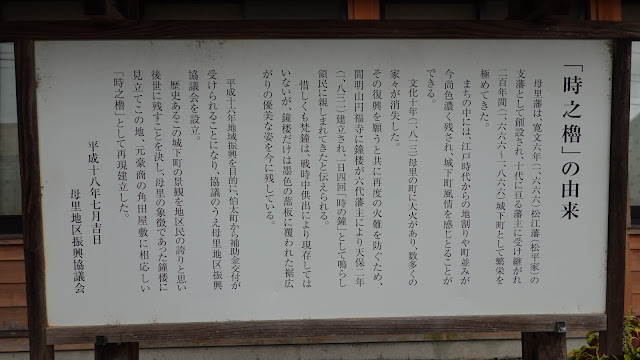 「時之櫓」の由来
母里藩は、寛文六年(一、六六六)松江藩(松平家)の
支藩として創設され、十代に亘る藩主に受け継がれ
二百年間(一、六六六～一、八六六)城下町として繁栄を
極めてきた。
まちの中には、江戸時代からの地割りや町並みが
今尚色濃く残され、城下町風情を感じとることが
できる。
文化十年(一、八一三)母里の町に大火があり、数多くの
家々が消失した。
その復興を願うと共に再度の火難を防ぐため、
間明山円福寺に鐘楼が六代藩主により天保二年
(一、八三一)建立され、一日四回「時の鐘」として鳴らし
領民に親しまれてきたと伝えられる。
惜しくも梵鐘は、戦時中供出により現存しては
いないが、鐘楼だけは墨色の蔀板に覆われた裾広
がりの優美な姿を今に残している。
平成十六年地域振興を目的に、伯太町から補助金交付が
受けられることになり、協議のうえ母里地区振興
協議会を設立。
歴史あるこの城下町の景観を地区民の誇りと思い
後世に残すことを決し、母里の象徴であった鐘楼に
見立てこの地、元豪商の角田屋敷に相応しい
「時之櫓」として再現建立した。
平成十八年七月吉日
母里地区振興協議会